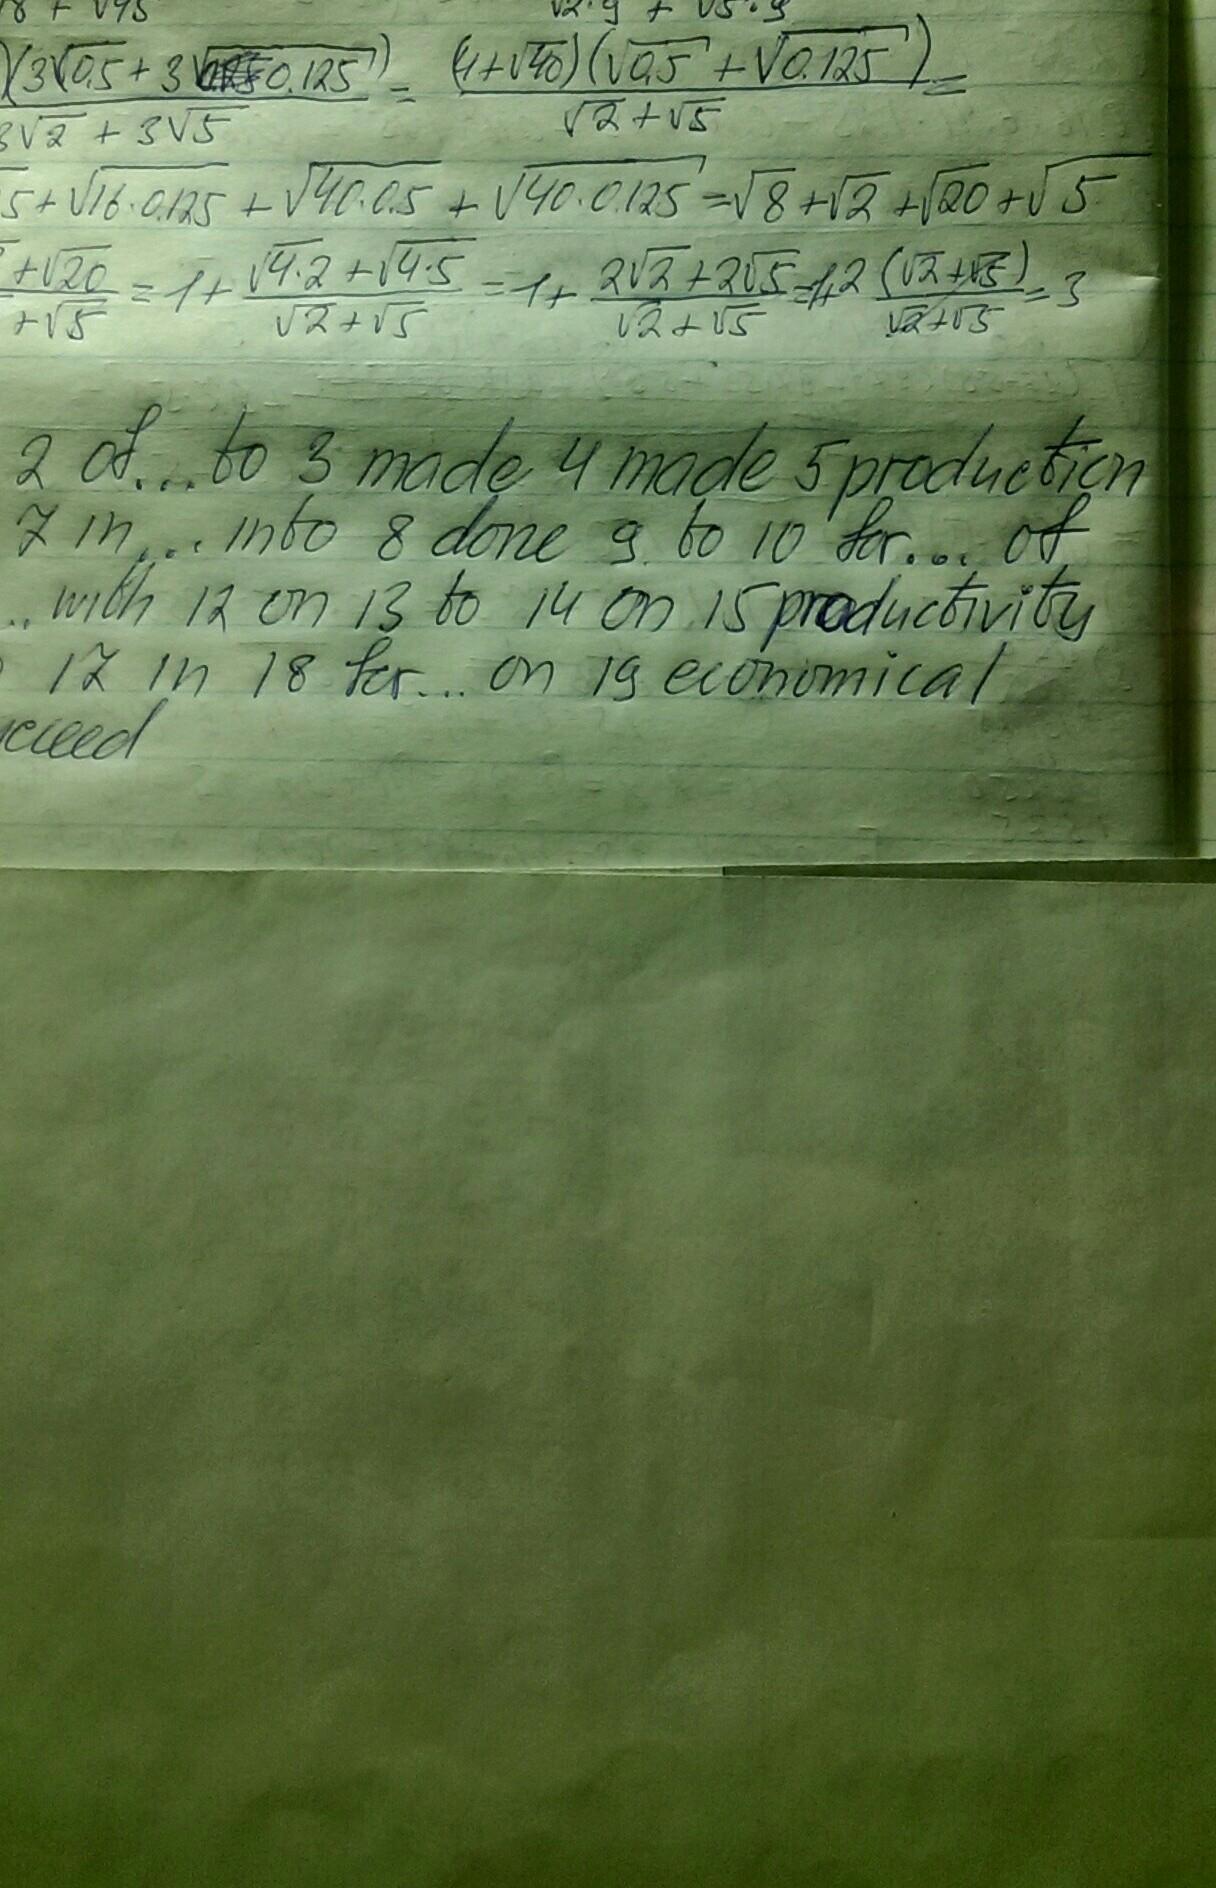 8 + √45 √2·9 + √5·9
)(3√0.5 + 3√0.125) = (4+√40)(√0.5 + √0.125) =
3√2 + 3√5 √2 + √5
5 + √16·0.125 + √40·0.5 + √40·0.125 = √8 + √2 + √20 + √5
+√20 = 1 + √4·2 + √4·5 = 1 + 2√2 + 2√5 = 1+2 (√2+√5) = 3
+√5 √2 + √5 √2 + √5 √2+√5
2 of... to 3 made 4 made 5 production
7 in... into 8 done 9 to 10 for... of
.. with 12 on 13 to 14 on 15 productivity
17 in 18 for... on 19 economical
cceed